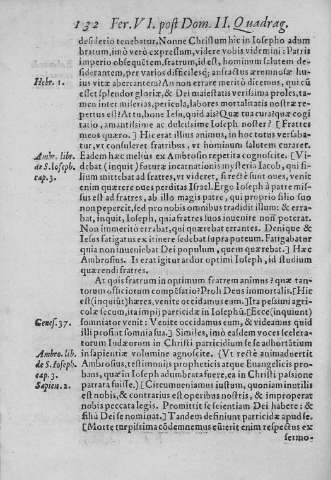 132 Fer. VI. post Dom. II. Quadrag.
desiderio tenebatur, Nonne Christum hic in Iosepho adum
bratum, imò verò expressum, videre vobis videmini: Patris
imperio obsequétem, fratrum, id est, hominum salutem de-
siderantem, per varios difficilesq; anfractus ærumnosæ hu-
Hebr. 1. ius vitæ aberrantem? An non errare meritò dicemus, qui cù
esset splendor gloriæ, & Dei maiestatis verissima proles, ta-
men inter miserias, pericula, labores mortalitatis nostræ re-
pertus est? At tu, bone Iesu, quid ais? Quæ tua cura? quæ cogi
tatio, amantissime ac dulcissime Ioseph noster? [Fratres
meos quæro.] Hic erat illius animus, in hoc totus versaba-
tur, vt consuleret fratribus, vt hominum salutem curaret.
Ambr. lib. Eadem hæc melius ex Ambrosio repetita cognoscite. [Vi-
de S. Ioseph. debat (inquit) futuræ incarnationis mysteria Iacob, qui fi-
cap. 3. lium mittebat ad fratres, vt videret, si recte sunt oues, venit
enim quærere oues perditas Israel. Ergo Ioseph à patre mis-
sus est ad fratres, ab illo magis patre, qui proprio filio suo
non pepercit, sed pro nobis omnibus tradidit illum: & erra-
bat, inquit, Ioseph, quia fratres suos inuenire non poterat.
Non immerito errabat, qui quærebat errantes. Denique &
Iesus fatigatus ex itinere sedebat supra puteum. Fatigabatur
quia non inueniebat Dei populum, quem quærebat.] Hæc
Ambrosius. Is erat igitur ardor optimi Ioseph, id studium
quærendi fratres.
At quis fratrum in optimum fratrem animus? quæ tan-
torum officiorum compensatio? Proh Deus immortalis. [Hic
est (inquiut) hæres, venite occidamus eum.] Ita pessimi agri-
colæ secum, ita impij patricidæ in Iosephū. [Ecce (inquiunt)
Genes. 37. somniator venit: Venite occidamus eum, & videamus quid
illi prosint somnia sua.] Similes, imò easdem voces scelera-
torum Iudæorum in Christi patricidium sese adhortātium
Ambro. lib. in sapientiæ volumine agnoscite. (Vt rectè animaduertit
de S. Ioseph. Ambrosius, testimonijs propheticis atque Euangelicis pro-
cap. 3. bans, quæ in Ioseph adumbrata fuere, ea in Christi passione
Sapien. 2. patrata fuisse.) [Circumueniamus iustum, quoniam inutilis
est nobis, & contrarius est operibus nostris, & improperat
nobis peccata legis. Promittit se scientiam Dei habere: &
filiū Dei se nominat.] Tandem definiunt patricidæ apud se.
[Morte turpissima cōdemnemus eū: erit enim respectus ex
sermo-